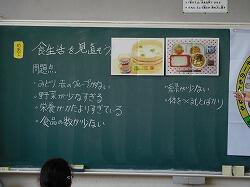 めあて
食生活を見直そう
問題点
・みどり・赤のグループがない
・野菜が少なすぎる
・栄養がかたよりすぎている
・食品の数が少ない
・体をつくるしょくばかり